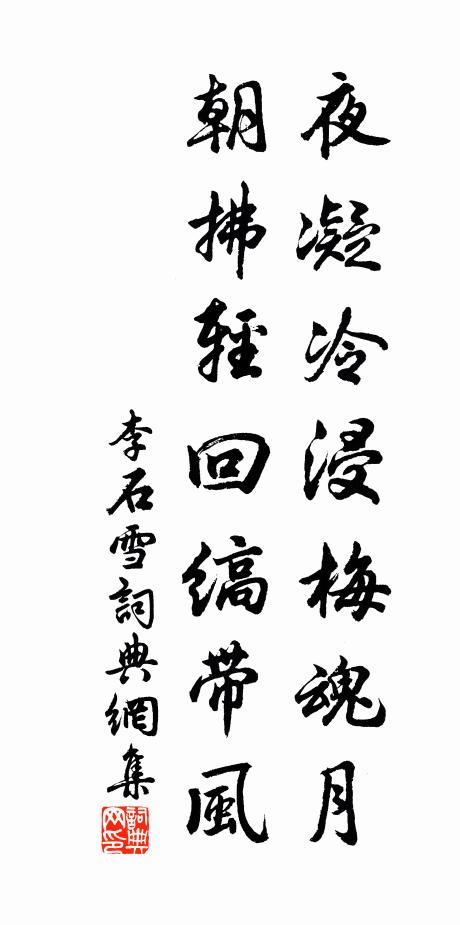 夜凝冷浸梅魂月
朝拂輕回縞帶風
李石雪詞典網集
詞典網印